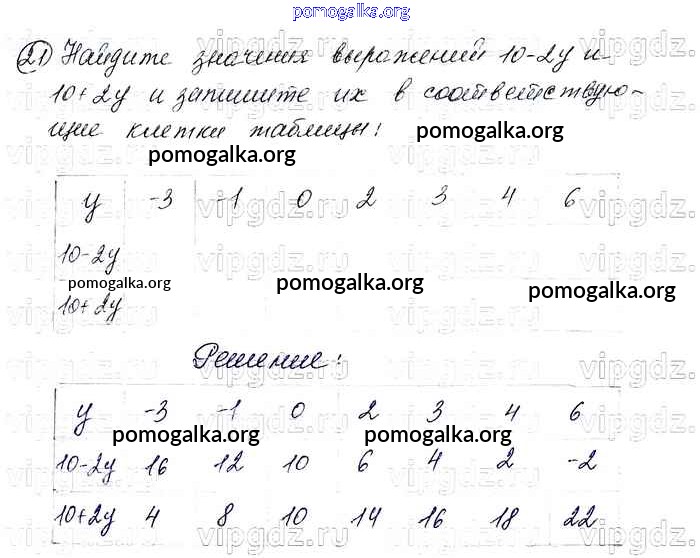 pomogalka.org
21) Найдите значения выражений 10-2y и
10+2y и запишите их в соответствую-
щие клетки таблицы:
pomogalka.org
pomogalka.org
y -3 -1 0 2 3 4 6
10-2y
pomogalka.org pomogalka.org pomogalka.org
10+2y
Решение:
y -3 -1 0 2 3 4 6
pomogalka.org pomogalka.org
10-2y 16 12 10 6 4 2 -2
10+2y 4 8 10 14 16 18 22